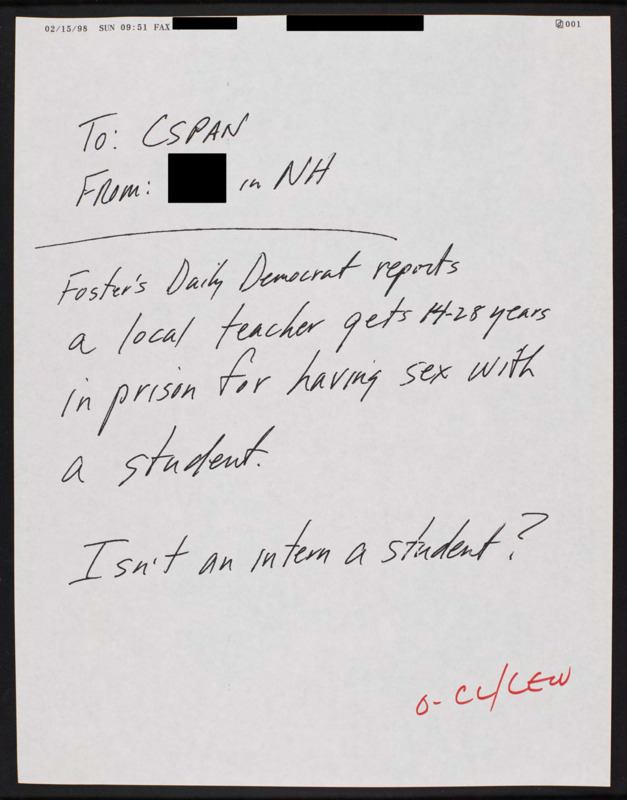 02/15/98 SUN 09:51 FAX
001
To: CSPAN
From: in NH
Foster's Daily Democrat reports
a local teacher gets 14-28 years
in prison for having sex with
a student.
Isn't an intern a student?
O- CL/LEW